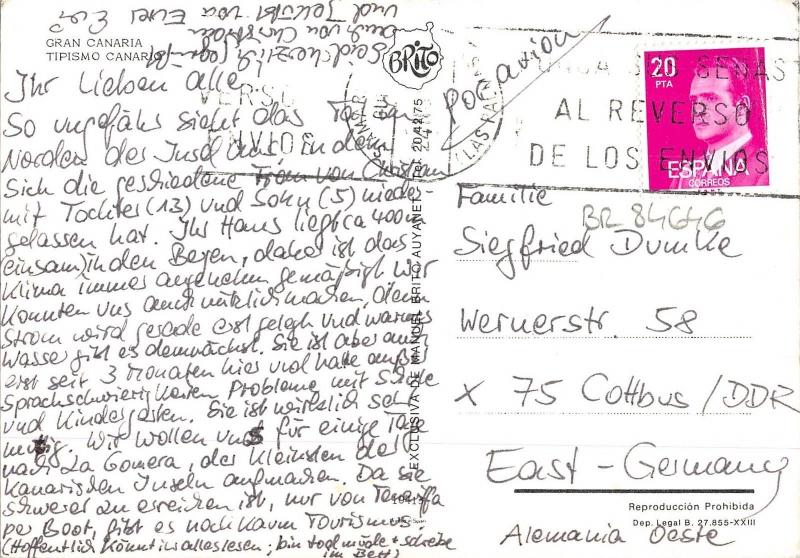 GRAN CANARIA
TIPISMO CANARIO
Ihr Lieben alle
So ungefähr sieht das Tal im
Norden der Insel aus in dem
sich die geschiedene Frau von Christian
mit Tochter (13) und Sohn (5) nieder
gelassen hat. Ihr Haus liegt ca 400m
(einsam) in den Bergen, daher ist das
Klima immer angenehm gemäßigt. Wir
konnten uns auch nützlich machen, denn
Strom wird gerade erst gelegt und warmes
Wasser gibt es demnächst. Sie ist aber auch
erst seit 3 Monaten hier und hat außer
Sprachschwierigkeiten Probleme mit Schule
und Kindergarten. Sie ist wirklich sehr
mutig. Wir wollen uns für einige Tage
nach La Gomera, der kleinsten der
Kanarischen Inseln aufmachen. Da sie
schwerer zu erreichen ist, nur von Teneriffa
per Boot, gibt es noch kaum Tourismus.
(Hoffentlich könnt ihr alles lesen, bin todmüde + schreibe
im Bett)
Seid herzlich gegrüßt
auch von Christian
und Jekübt von Eurer
BRITO
EXCLUSIVA DE MANUEL BRITO AUYANET
por avion
LAS PALMAS
AL REVERSO
DE LOS ENVIOS
20
PTA
ESPAÑA
CORREOS
BR 84646
Familie
Siegfried Dumke
Wernerstr. 58
X 75 Cottbus/DDR
East-Germany
Alemania Oeste
Reproducción Prohibida
Dep. Legal B. 27.855-XXIII